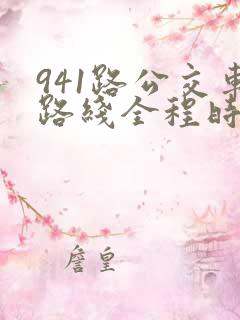 941路公交车
路綫全程时
詹皇